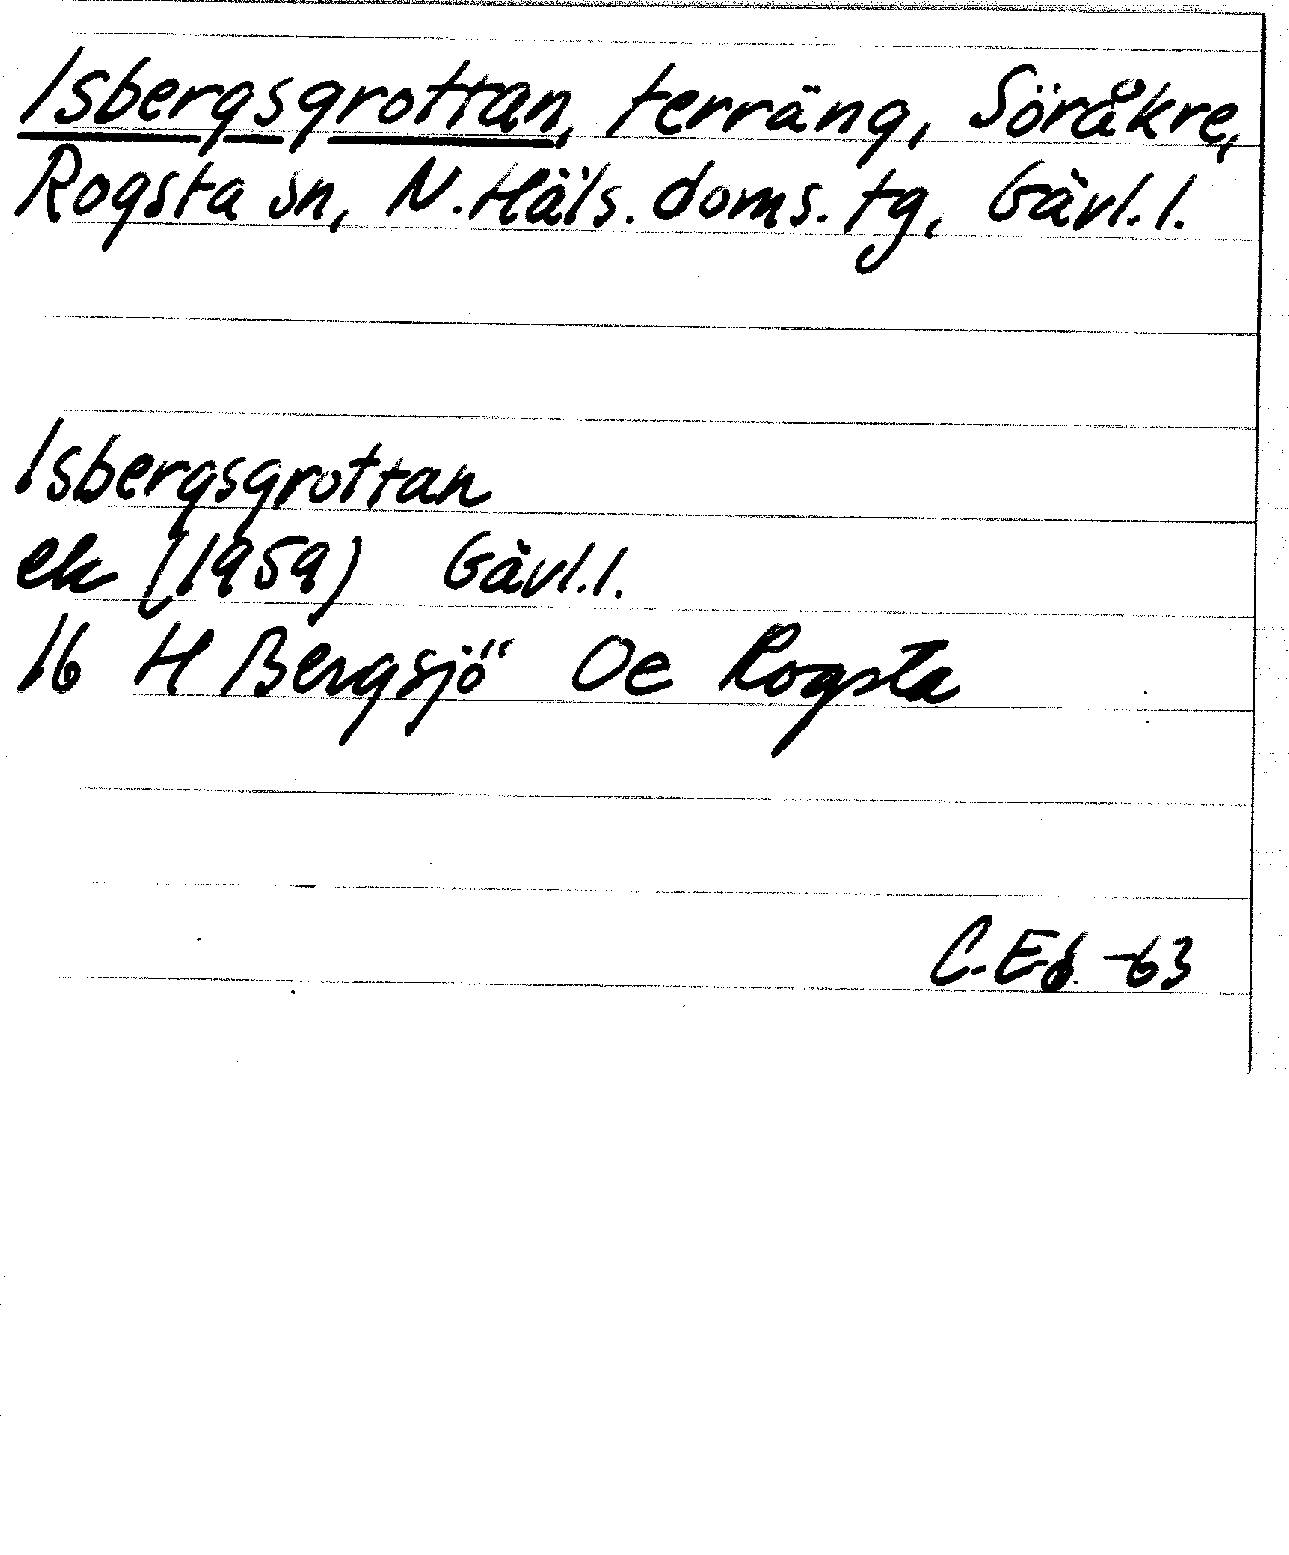 Isbergsgrottan, terräng, Söråkre,
Rogsta sn, N. Häls. doms. tg, Gävl. l.
Isbergsgrottan
ek (1959) Gävl. l.
16 H Bergsjö Oe Rogsta
C. Ed. -63